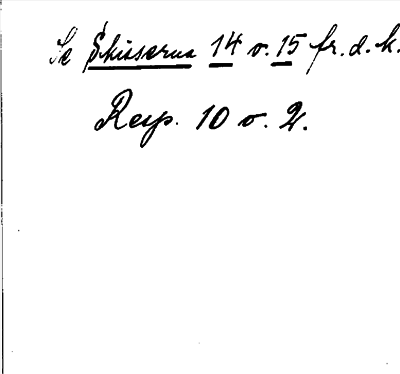 Se Skisserna 14 o. 15 fr. d. k.
Resp. 10 o. 2.